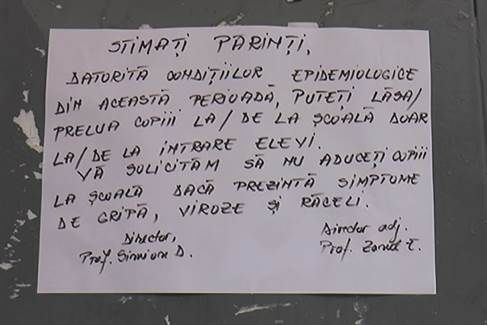 STIMAȚI PĂRINȚI,
DATORITĂ CONDIȚIILOR EPIDEMIOLOGICE
DIN ACEASTĂ PERIOADĂ, PUTEȚI LĂSA/
PRELUA COPIII LA/DE LA ȘCOALĂ DOAR
LA/DE LA INTRARE ELEVI.
VĂ SOLICITĂM SĂ NU ADUCEȚI COPIII
LA ȘCOALĂ DACĂ PREZINTĂ SIMPTOME
DE GRIPĂ, VIROZE ȘI RĂCELI.
Director, Director adj.
Prof. D. Prof. E.